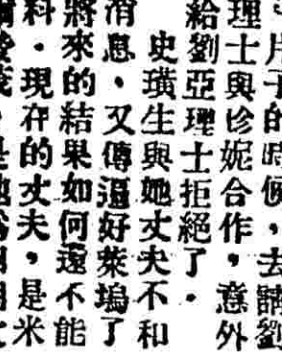 片子的時候，去請劉
理士與珍妮合作，意外
給劉亞理士拒絕了．
史璜生與她丈夫不和
消息，又傳遍好萊塢了
將來的結果如何還不能
料．現在的丈夫，是米